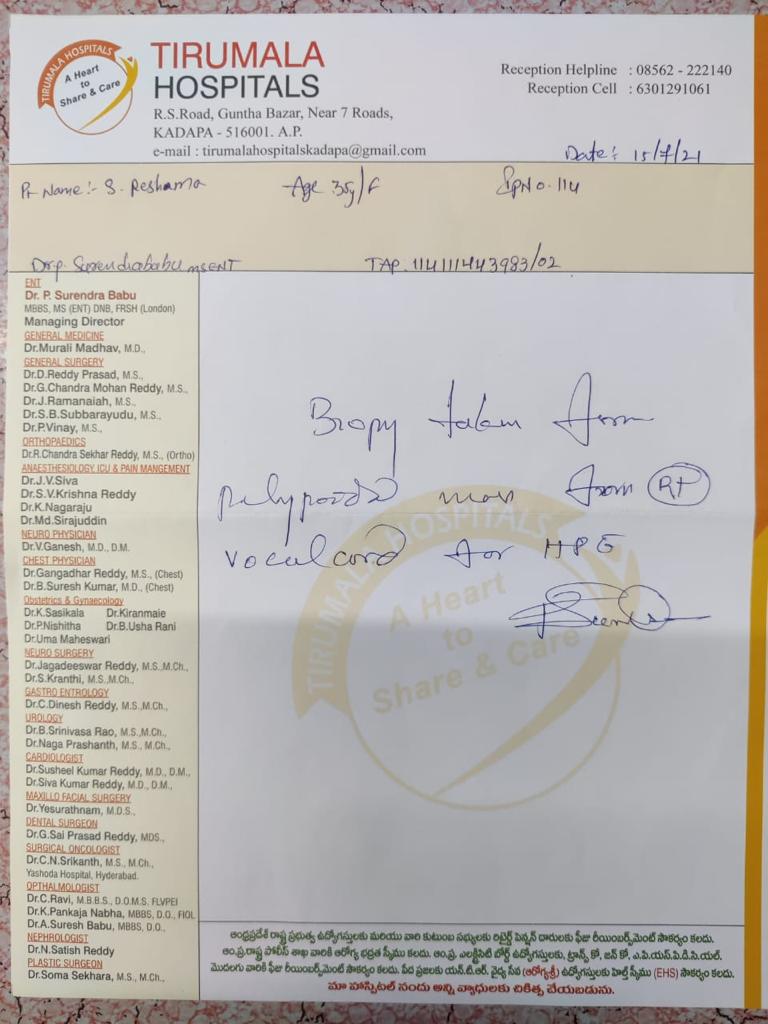 TIRUMALA HOSPITALS
A Heart
to
Share & Care
TIRUMALA
HOSPITALS
R.S.Road, Guntha Bazar, Near 7 Roads,
KADAPA - 516001. A.P.
e-mail : tirumalahospitalskadapa@gmail.com
Reception Helpline : 08562 - 222140
Reception Cell : 6301291061
Date: 15/7/21
Pt Name:- S. Reshama Age 35y/F IpNo. 114
Dr.p. Surendrababu MSENT TAP. 114111443983/02
ENT
Dr. P. Surendra Babu
MBBS, MS (ENT) DNB, FRSH (London)
Managing Director
GENERAL MEDICINE
Dr.Murali Madhav, M.D.,
GENERAL SURGERY
Dr.D.Reddy Prasad, M.S.,
Dr.G.Chandra Mohan Reddy, M.S.,
Dr.J.Ramanaiah, M.S.,
Dr.S.B.Subbarayudu, M.S.,
Dr.P.Vinay, M.S.,
ORTHOPAEDICS
Dr.R.Chandra Sekhar Reddy, M.S., (Ortho)
ANAESTHESIOLOGY, ICU & PAIN MANGEMENT
Dr.J.V.Siva
Dr.S.V.Krishna Reddy
Dr.K.Nagaraju
Dr.Md.Sirajuddin
NEURO PHYSICIAN
Dr.V.Ganesh, M.D., D.M.
CHEST PHYSICIAN
Dr.Gangadhar Reddy, M.S., (Chest)
Dr.B.Suresh Kumar, M.D., (Chest)
Obstetrics & Gynaecology
Dr.K.Sasikala Dr.Kiranmaie
Dr.P.Nishitha Dr.B.Usha Rani
Dr.Uma Maheswari
NEURO SURGERY
Dr.Jagadeeswar Reddy, M.S.,M.Ch.,
Dr.S.Kranthi, M.S.,M.Ch.,
GASTRO ENTROLOGY
Dr.C.Dinesh Reddy, M.S.,M.Ch.,
UROLOGY
Dr.B.Srinivasa Rao, M.S.,M.Ch.,
Dr.Naga Prashanth, M.S., M.Ch.,
CARDIOLOGIST
Dr.Susheel Kumar Reddy, M.D., D.M.,
Dr.Siva Kumar Reddy, M.D., D.M.,
MAXILLO FACIAL SURGERY
Dr.Yesurathnam, M.D.S.,
DENTAL SURGEON
Dr.G.Sai Prasad Reddy, MDS.,
SURGICAL ONCOLOGIST
Dr.C.N.Srikanth, M.S., M.Ch.,
Yashoda Hospital, Hyderabad.
OPTHALOMOGIST
Dr.C.Ravi, M.B.B.S., D.O.M.S. FLVPEI
Dr.K.Pankaja Nabha, MBBS, D.O., FIOL
Dr.A.Suresh Babu, MBBS, D.O.,
NEPHROLOGIST
Dr.N.Satish Reddy
PLASTIC SURGEON
Dr.Soma Sekhara, M.S., M.Ch.,
Biopy taken from
polypoidal mass from RT
vocal cord for HPE
TIRUMALA HOSPITALS
A Heart
to
Share & Care
ఆంధ్రప్రదేశ్ రాష్ట్ర ప్రభుత్వ ఉద్యోగస్తులకు మరియు వారి కుటుంబ సభ్యులకు రిటైర్డ్ పెన్షన్ దారులకు ఫీజు రీయింబర్స్‌మెంట్ సౌకర్యం కలదు.
ఆం.ప్ర.రాష్ట్ర పోలీస్ శాఖ వారికి ఆరోగ్య భద్రత స్కీము కలదు. ఆం.ప్ర. ఎలక్ట్రిసిటి బోర్డ్ ఉద్యోగస్తులకు, ట్రాన్స్ కో, జన్ కో, ఎ.పి.యస్.పి.డి.సి.యల్.
మొదలగు వారికి ఫీజు రీయింబర్స్‌మెంట్ సౌకర్యం కలదు. పేద ప్రజలకు యన్.టి.ఆర్. వైద్య సేవ (ఆరోగ్యశ్రీ) ఉద్యోగస్తులకు హెల్త్ స్కీము (EHS) సౌకర్యం కలదు.
మా హాస్పిటల్ నందు అన్ని వ్యాధులకు చికిత్స చేయబడును.